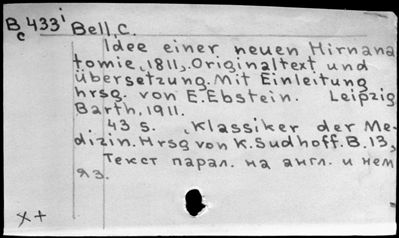 Bc 433i Bell, C.
Idee einer neuen Hirnana
tomie „1811„. Originaltext und
Übersetzung. Mit Einleitung
hrsg. von E. Ebstein. Leipzig
Barth, 1911.
43 s. „Klassiker der Me-
dizin. Hrsg von K. Sudhoff. B. 13„
Текст парал. на англ. и нем
яз.
x +